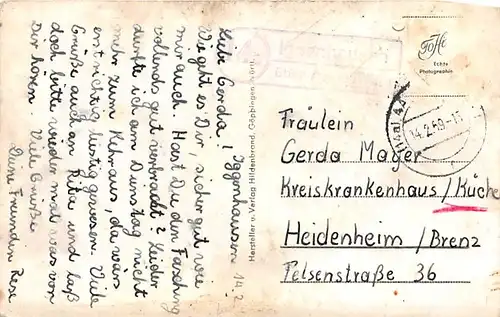 Iggenhausen, 14.2.
Liebe Gerda!
Wie geht es Dir, sicher gut wie
mir auch. Hast Du den Fasching
vollends gut verbracht? Leider
durfte ich am Dienstag nicht
mehr zum Kehraus, da wärs
erst richtig lustig gewesen. Viele
Grüße auch an Rita und laß
doch bitte wieder mal was von
Dir hören. Viele Grüße
Deine Freundin Rese
Hersteller u. Verlag Hildenbrand, Göppingen
GoHi
Echte
Photographie
14.2.59-15
Fräulein
Gerda Mayer
Kreiskrankenhaus/Küche
Heidenheim/Brenz
Felsenstraße 36